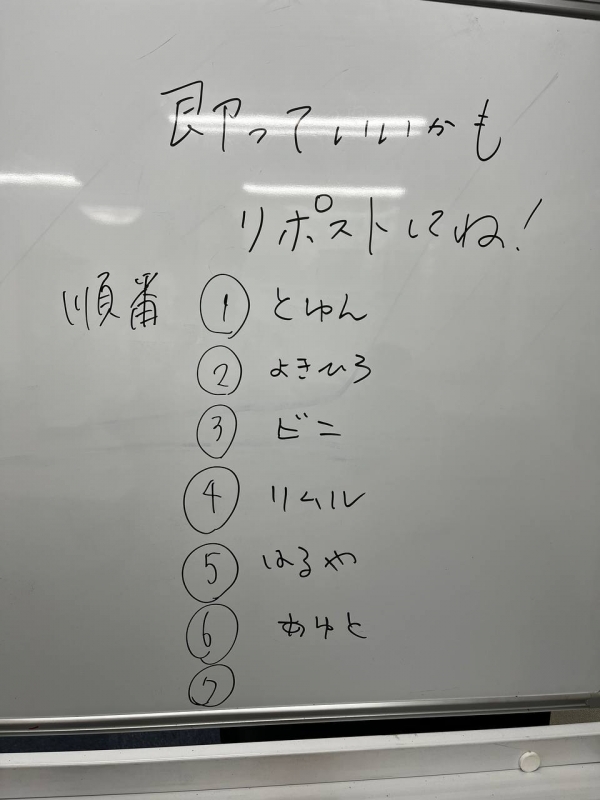 即っていいかも
リポストしてね!
順番 ① とゆん
② よきひろ
③ ビニ
④ リムル
⑤ はるや
⑥ あゆと
⑦